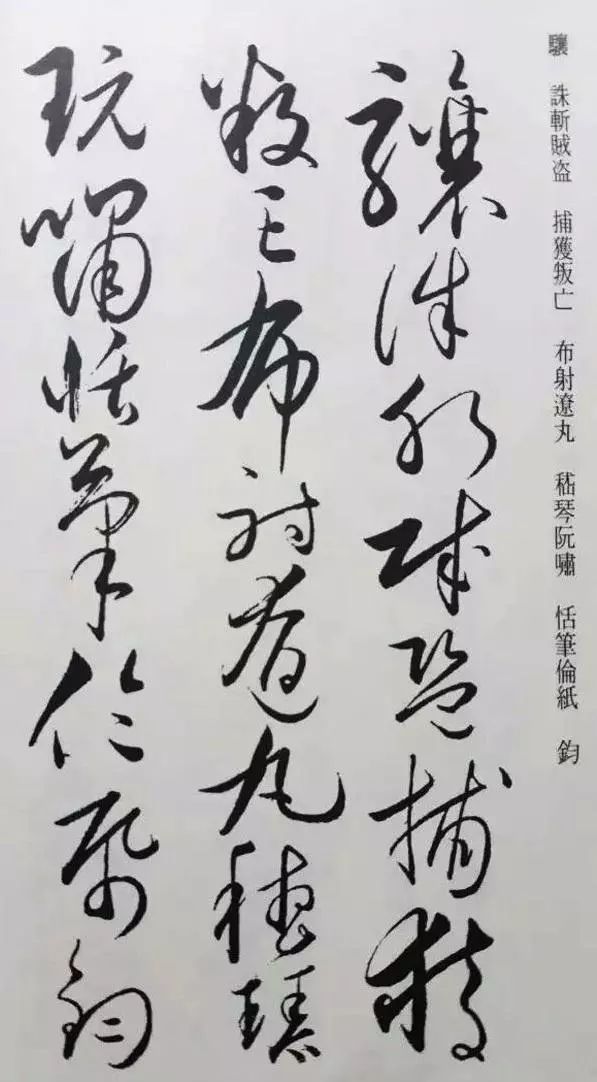 驤 誅斬賊盗 捕獲叛亡 布射遼丸 嵇琴阮嘯 恬筆倫紙 鈞
驤誅斬賊盗捕獲
叛亡布射遼丸嵇琴
阮嘯恬筆倫紙鈞